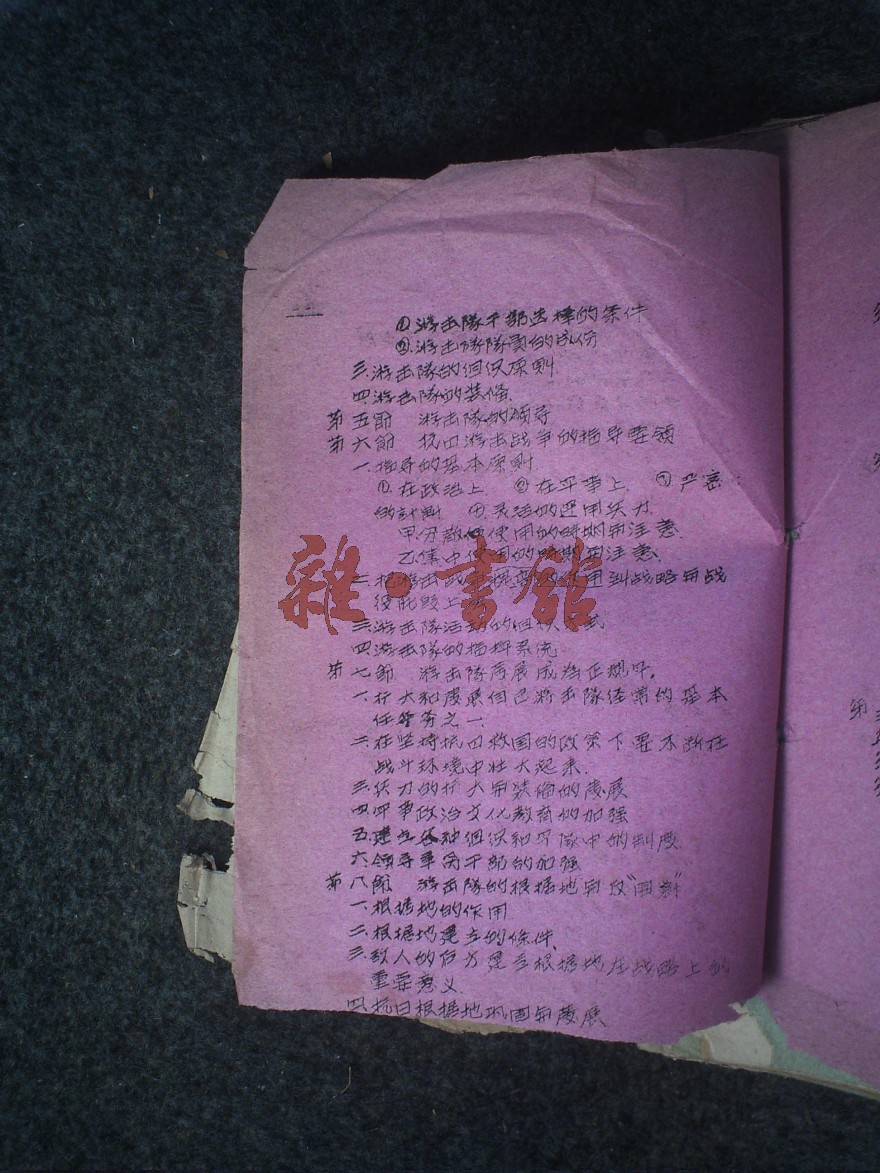 ①游击隊干部选择的条件
②游击隊隊員的成份
三.游击隊的组织原则
四.游击隊的装备.
第五節 游击隊的領导
第六節 抗日游击战争的指导要領
一.指导的基本原则
①在政治上 ②在军事上 ③严密
的計划 ④灵活的运用兵力.
甲.分散使用的時期与注意
乙.集中使用的時期与注意.
二.把游击战争提高的作用到战略与战
役
三.游击隊活动的组织方式
四.游击隊的指挥系统
第七節 游击隊发展成为正规军.
一.扩大和发展自己游击隊经常的基本
任务之一
二.在坚持抗日救国的政策下要不断在
战斗环境中壮大起来.
三.兵力的扩大与装备的发展
四.军事政治文化教育的加强
五.建立各种组织和军隊中的制度.
六.領导事商干部的加强
第八節 游击隊的根据地与反“围剿”
一.根据地的作用
二.根据地建立的條件.
三.敌人的后方建立根据地在战略上的
重要意义.
四.抗日根据地巩固与发展
雜·書館